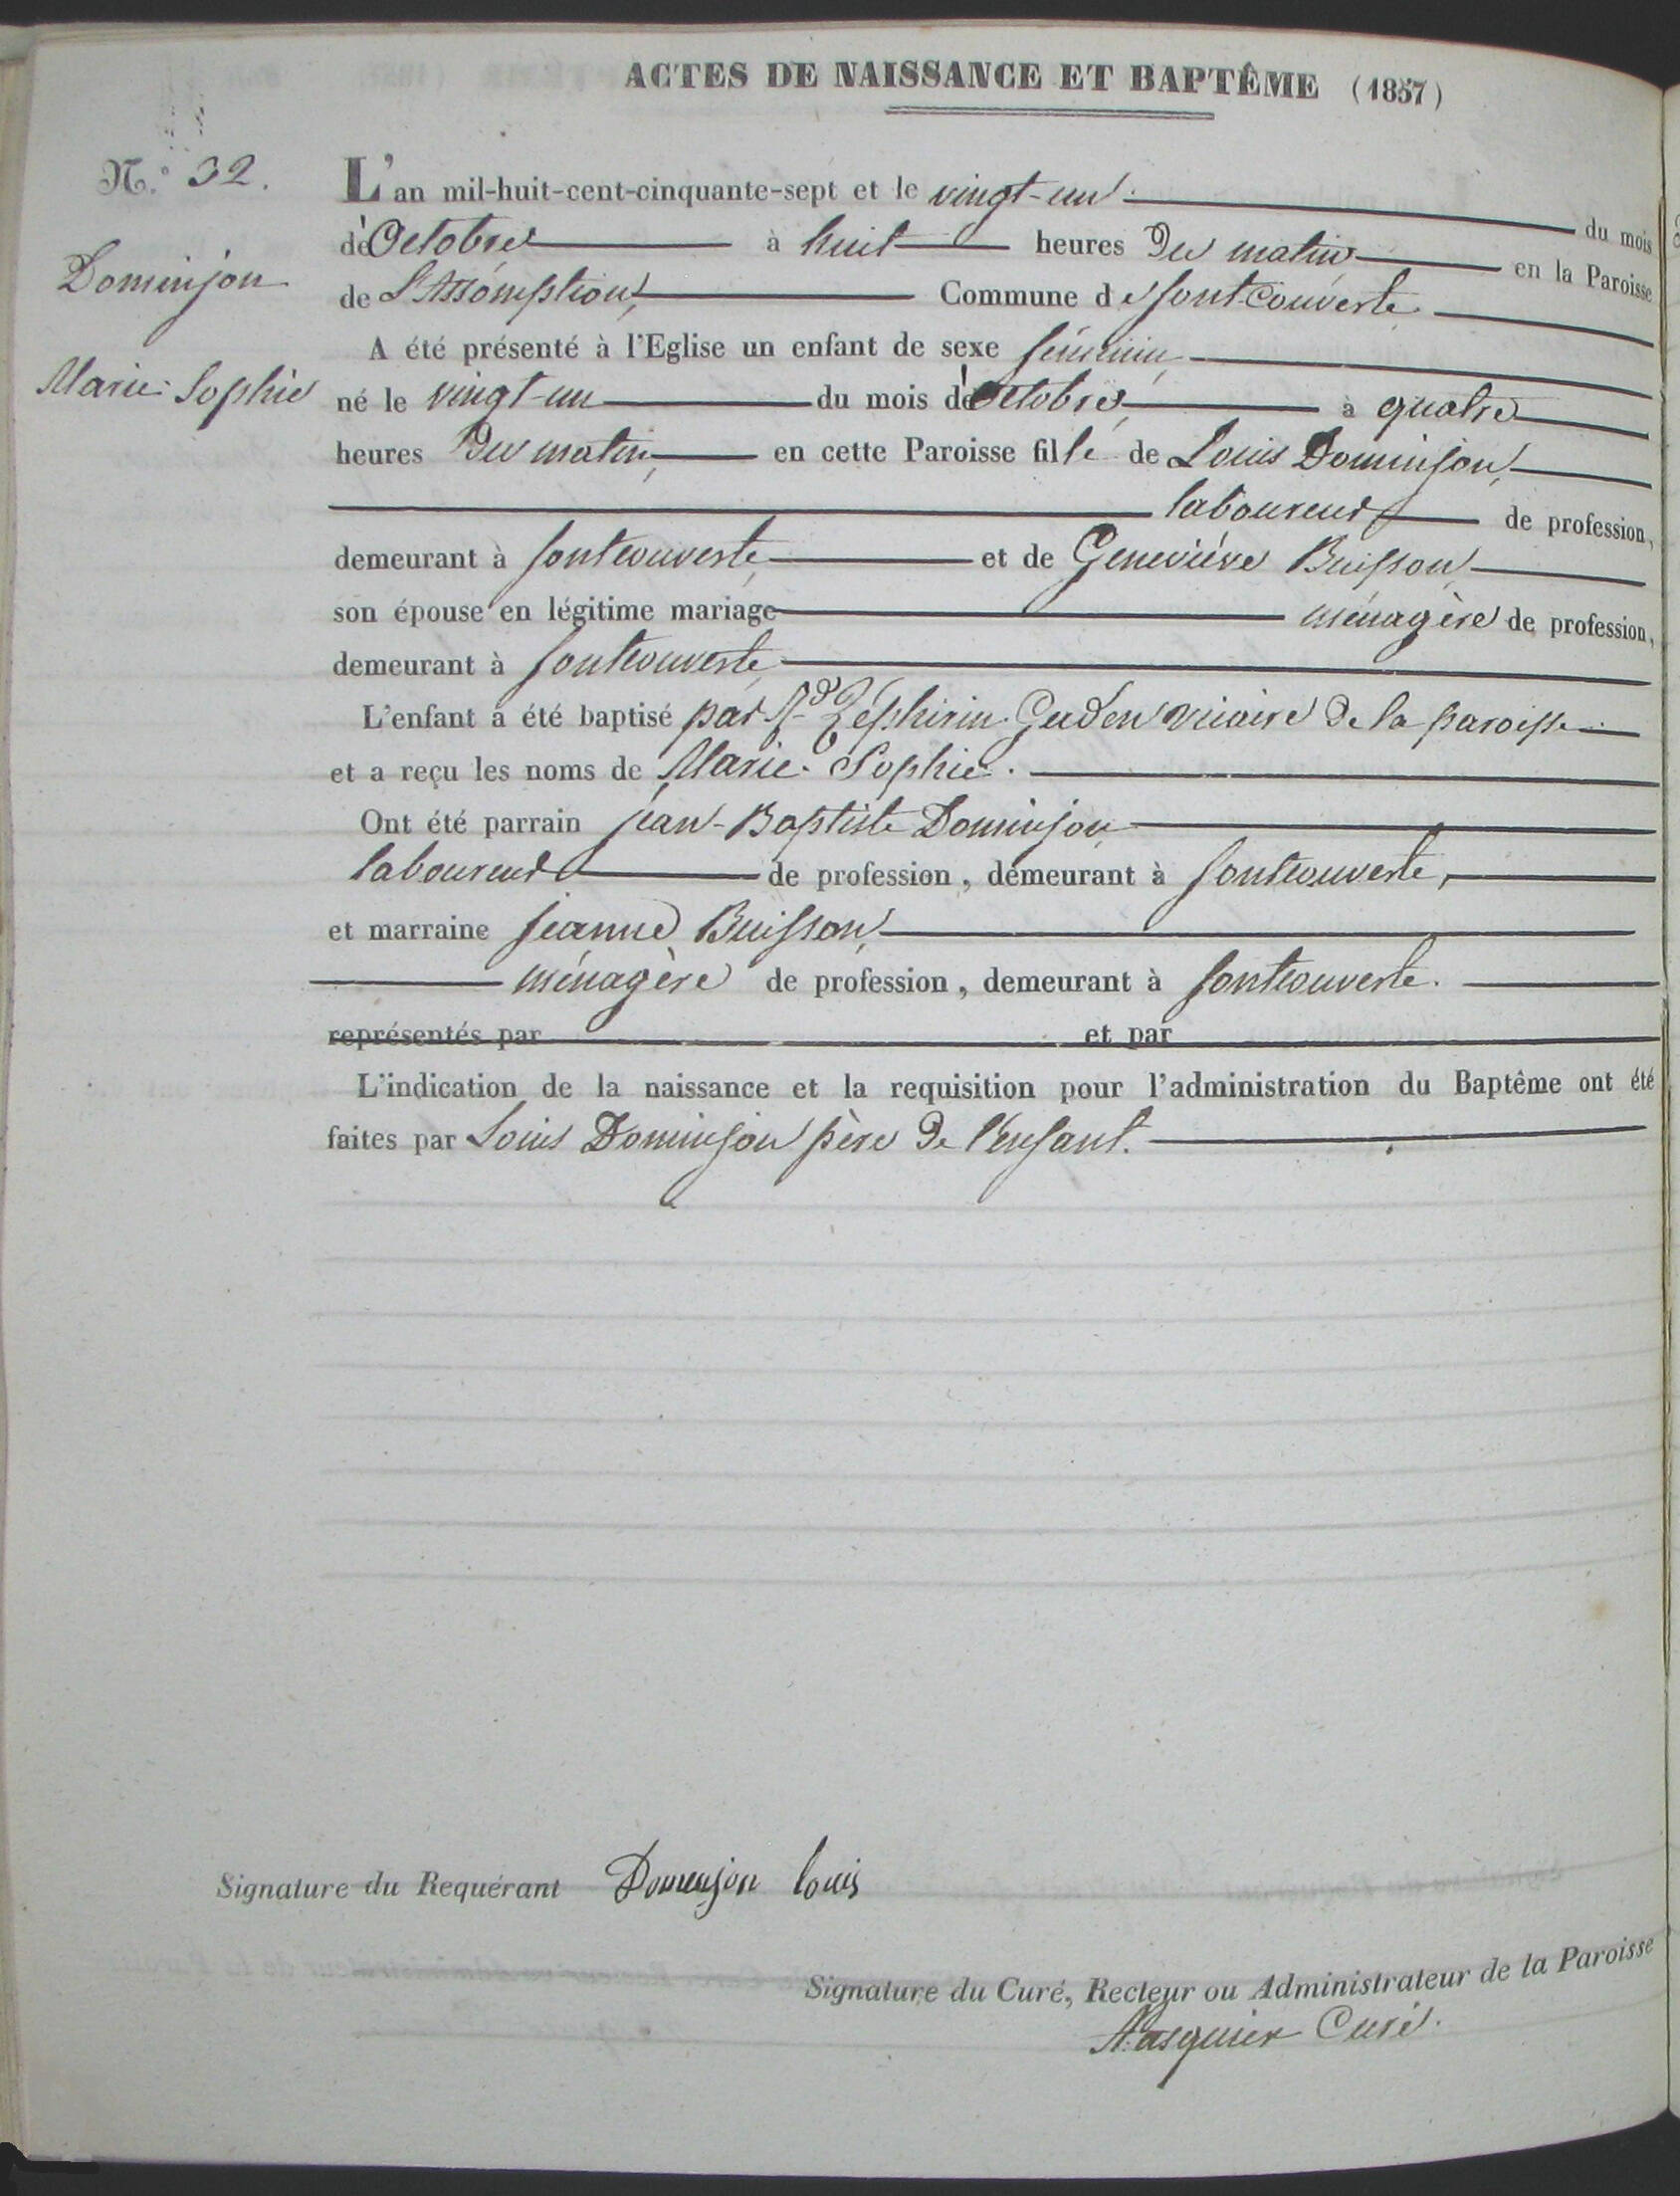 ACTES DE NAISSANCE ET BAPTÊME (1857)
N.º 32.
Dominjon
Marie-Sophie
L'an mil-huit-cent-cinquante-sept et le vingt-un du mois
d'Octobre à huit heures du matin en la Paroisse
de L'Assomption, Commune de fontcouverte
A été présenté à l'Eglise un enfant de sexe féminin,
né le vingt-un du mois d'Octobre, à quatre
heures du matin, en cette Paroisse fille de Louis Dominjon,
laboureur de profession,
demeurant à fontcouverte, et de Geneviève Buisson
son épouse en légitime mariage ménagère de profession,
demeurant à fontcouverte
L'enfant a été baptisé par Rd Zéphirin vicaire de la paroisse
et a reçu les noms de Marie-Sophie.
Ont été parrain jean-Baptiste Dominjon,
laboureur de profession, demeurant à fontcouverte,
et marraine jeanne Buisson,
ménagère de profession, demeurant à fontcouverte.
représentés par et par
L'indication de la naissance et la requisition pour l'administration du Baptême ont été
faites par Louis Dominjon père de l'enfant.
Signature du Requérant Domenjon louis
Signature du Curé, Recteur ou Administrateur de la Paroisse
Curé.